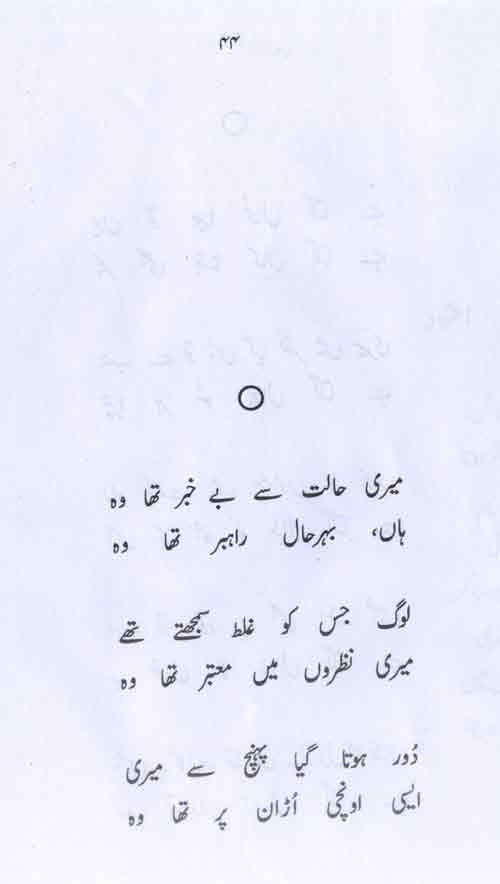 ۴۴
میری حالت سے بے خبر تھا وہ
ہاں، بہرحال راہبر تھا وہ
لوگ جس کو غلط سمجھتے تھے
میری نظروں میں معتبر تھا وہ
دُور ہوتا گیا پہنچ سے میری
ایسی اونچی اُڑان پر تھا وہ